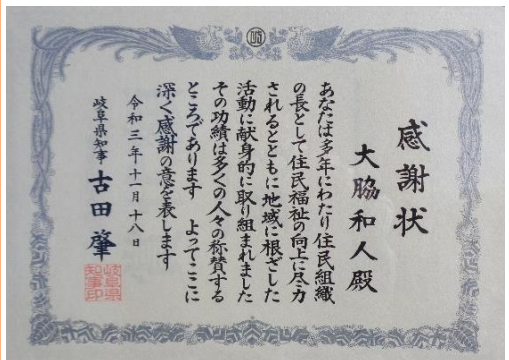 感謝状
大脇和人殿
あなたは多年にわたり住民組織
の長として住民福祉の向上に尽力
されるとともに地域に根ざした
活動に献身的に取り組まれました
その功績は多くの人々の称賛する
ところであります よってここに
深く感謝の意を表します
令和三年十一月十八日
岐阜県知事 古田肇
岐阜県
知事印